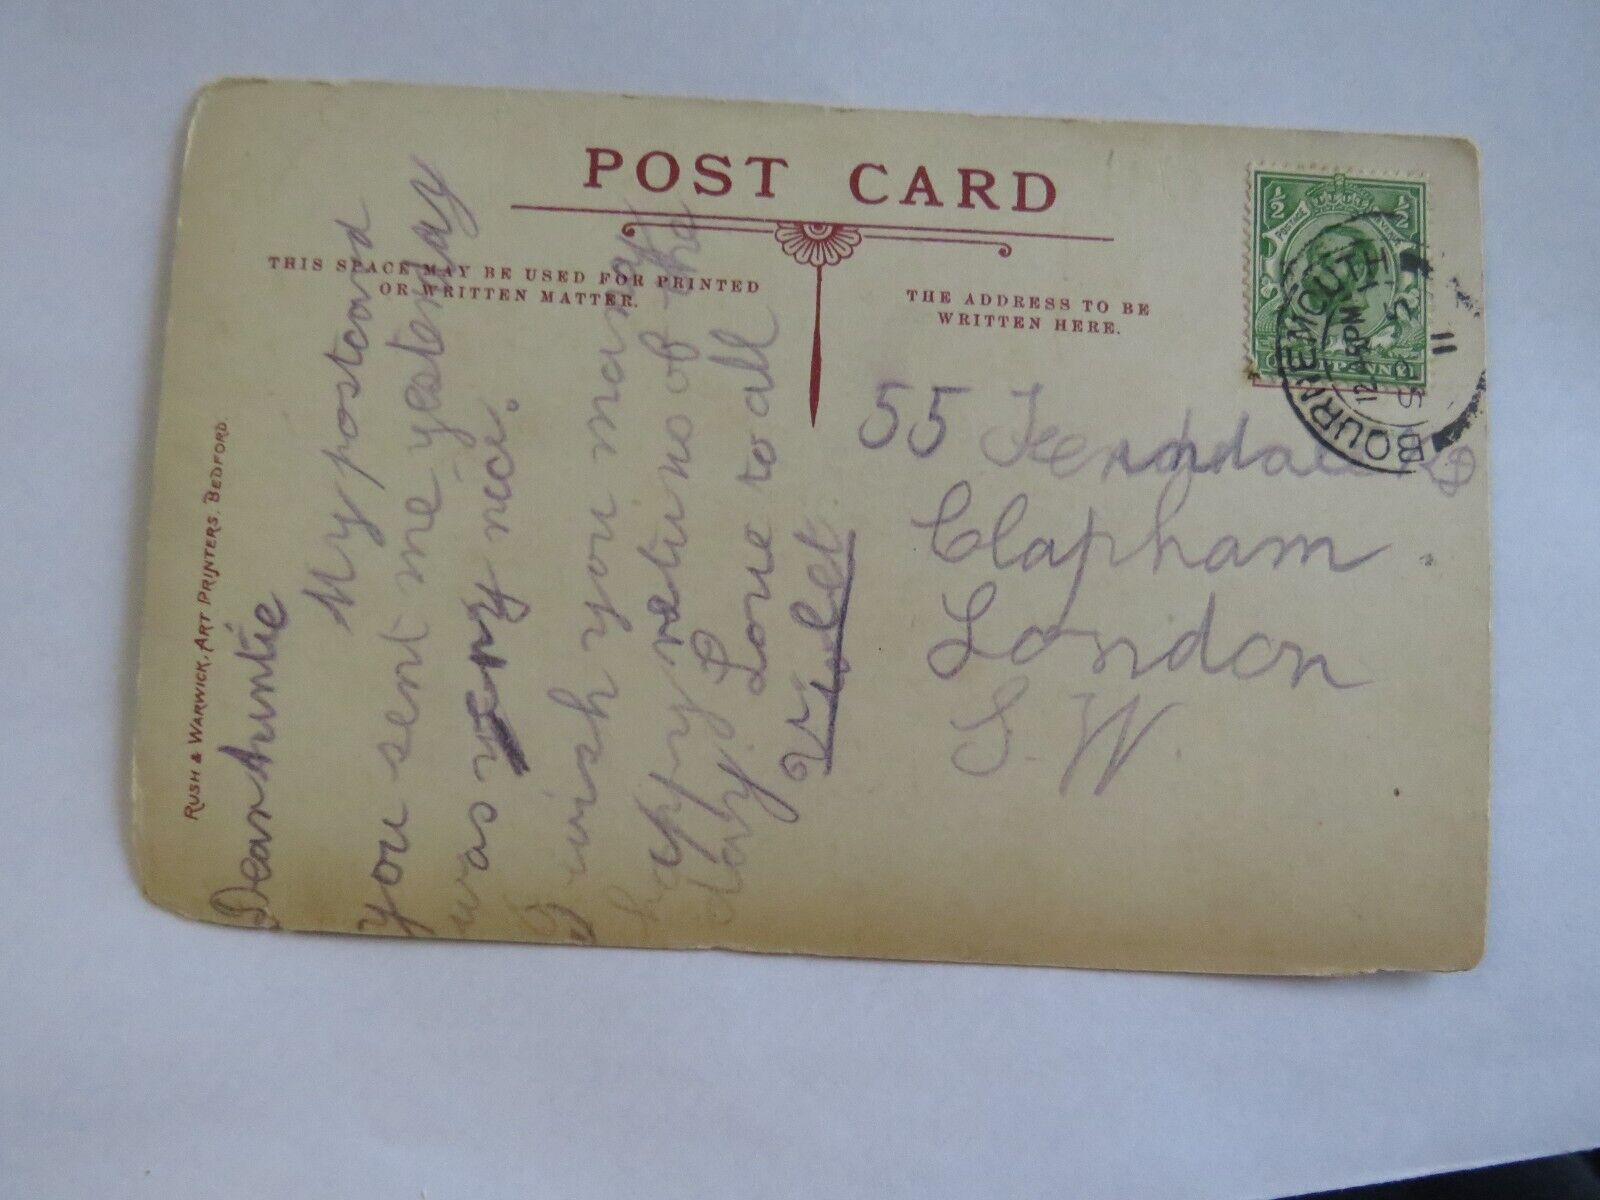 POST CARD
THIS SPACE MAY BE USED FOR PRINTED
OR WRITTEN MATTER.
THE ADDRESS TO BE
WRITTEN HERE.
RUSH & WARWICK, ART PRINTERS, BEDFORD.
Dear Auntie
My postcard
you sent me yesterday
was very nice.
I wish you many
happy returns of the
day. Love to all
Violet
55
Clapham
London
S. W.
BOURNEMOUTH
12.45PM
SP 2
11
½ ½
POSTAGE REVENUE